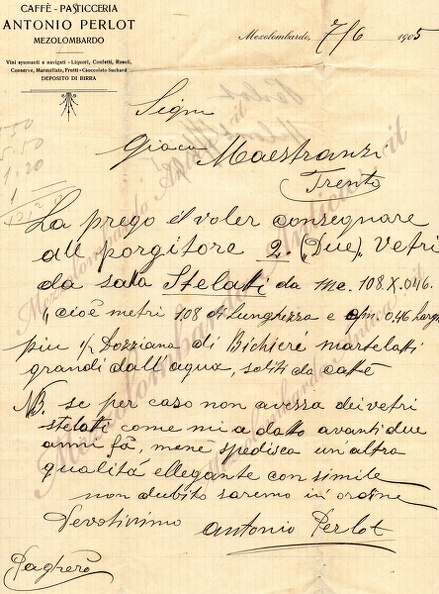 CAFFÈ - PASTICCERIA
ANTONIO PERLOT
MEZOLOMBARDO
Vini spumanti e navigati - Liquori, Confetti, Rosoli,
Conserve, Marmellate, Frutti - Cioccolato Suchard
DEPOSITO DI BIRRA
Mezolombardo, 7/6 1905
Signr
Giac. Maestranzi
Trento
5.50
1.20
La prego il voler consegnare
all porgitore 2. (Due) Vetri
da sala Stelati da Me. 108 X 046.
cioè metri 1,08 di Lunghezza e 0,46 Larg
piu ½ Dozziana di Bichieri martelatti
grandi dall'aqua, soliti da caffè
NB. se per caso non avessa dei vetri
stelati come mi a datto avanti due
anni fà, mene spedisca un'altra
qualità ellegante con simile
non dubito saremo in ordine
Devotissimo
Antonio Perlot
Pagherò